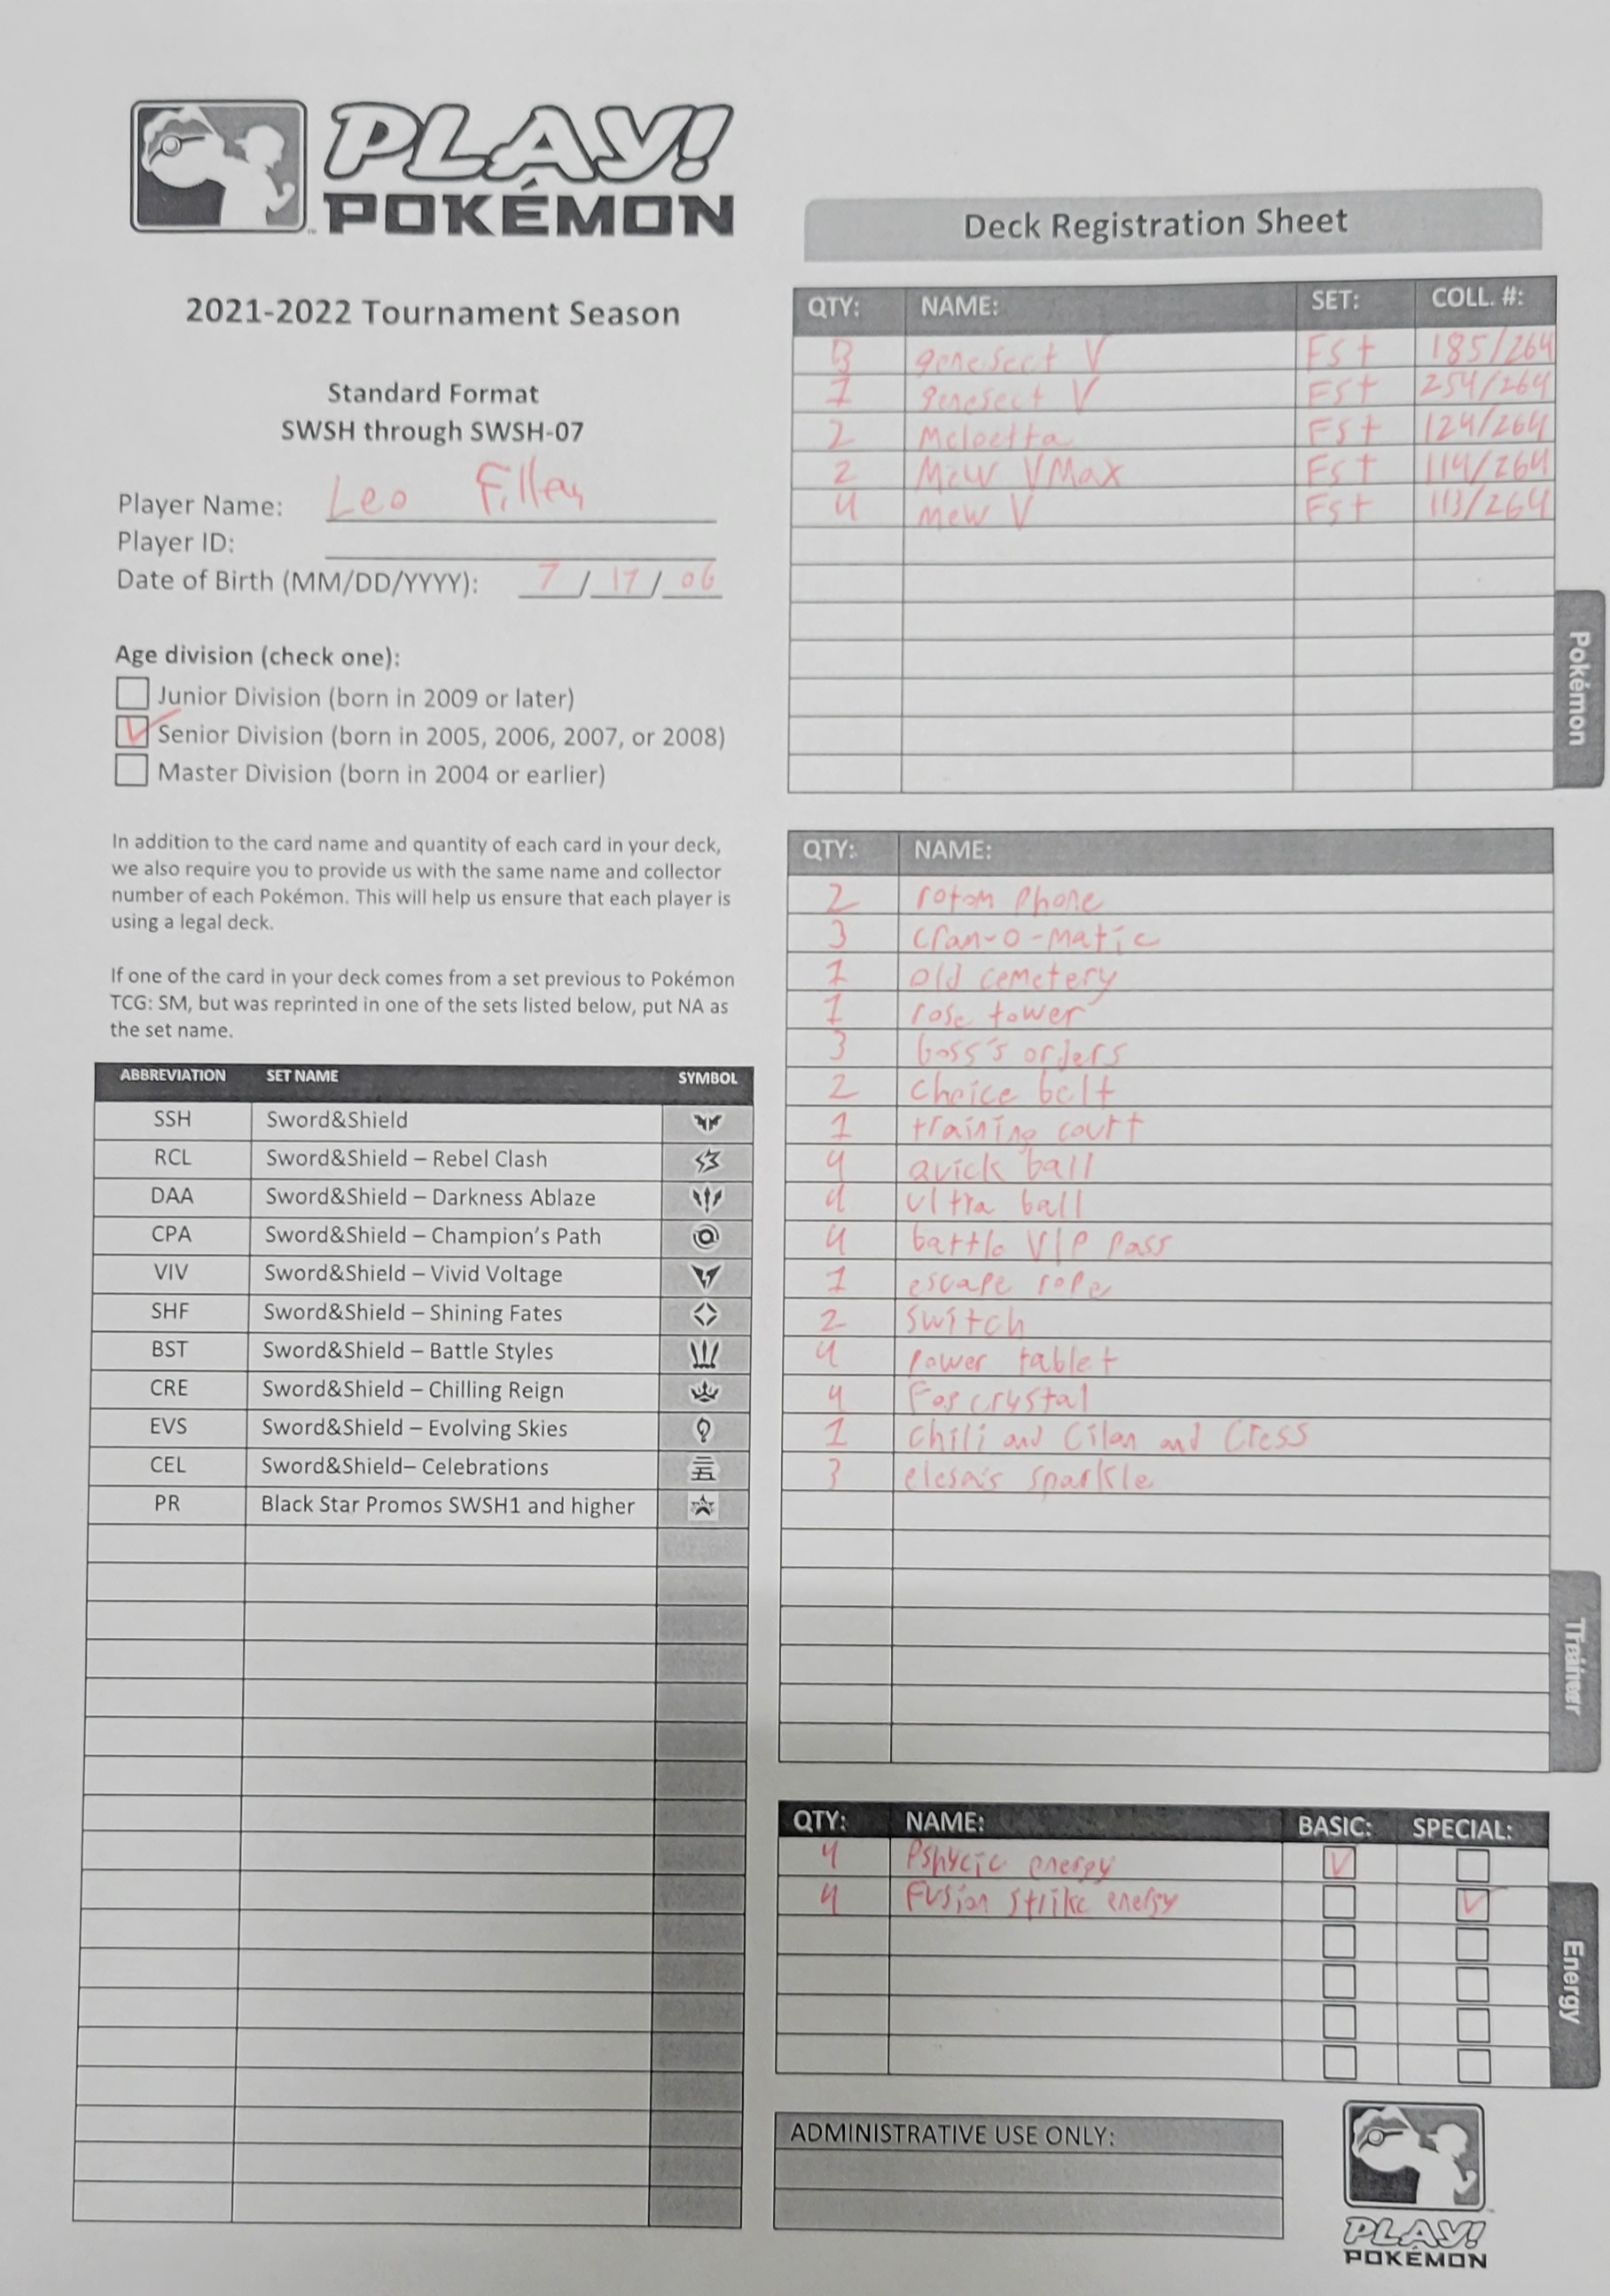 PLAY!
POKÉMON
2021-2022 Tournament Season
Standard Format
SWSH through SWSH-07
Player Name: Leo
Player ID:
Date of Birth (MM/DD/YYYY): 7 / 17 / 06
Age division (check one):
Junior Division (born in 2009 or later)
Senior Division (born in 2005, 2006, 2007, or 2008)
Master Division (born in 2004 or earlier)
In addition to the card name and quantity of each card in your deck,
we also require you to provide us with the same name and collector
number of each Pokémon. This will help us ensure that each player is
using a legal deck.
If one of the card in your deck comes from a set previous to Pokémon
TCG: SM, but was reprinted in one of the sets listed below, put NA as
the set name.
ABBREVIATION SET NAME SYMBOL
SSH Sword&Shield
RCL Sword&Shield – Rebel Clash
DAA Sword&Shield – Darkness Ablaze
CPA Sword&Shield – Champion's Path
VIV Sword&Shield – Vivid Voltage
SHF Sword&Shield – Shining Fates
BST Sword&Shield – Battle Styles
CRE Sword&Shield – Chilling Reign
EVS Sword&Shield – Evolving Skies
CEL Sword&Shield– Celebrations
PR Black Star Promos SWSH1 and higher
Deck Registration Sheet
QTY: NAME: SET: COLL. #:
3 genesect V Fst 185/264
1 genesect V Fst 254/264
2 Meloetta Fst 124/264
2 Mew VMax Fst 114/264
4 mew V Fst 113/264
Pokémon
QTY: NAME:
2 rotom phone
3 cram-o-matic
1 old cemetery
1 rose tower
3 boss's orders
2 choice belt
1 training court
4 quick ball
4 ultra ball
4 battle VIP pass
1 escape rope
2 switch
4 power tablet
4 Fog crystal
1 chili and Cilan and Cress
3 elesa's sparkle
Trainer
QTY: NAME: BASIC: SPECIAL:
4 Pshycic energy
4 Fusion strike energy
Energy
ADMINISTRATIVE USE ONLY:
PLAY!
POKÉMON